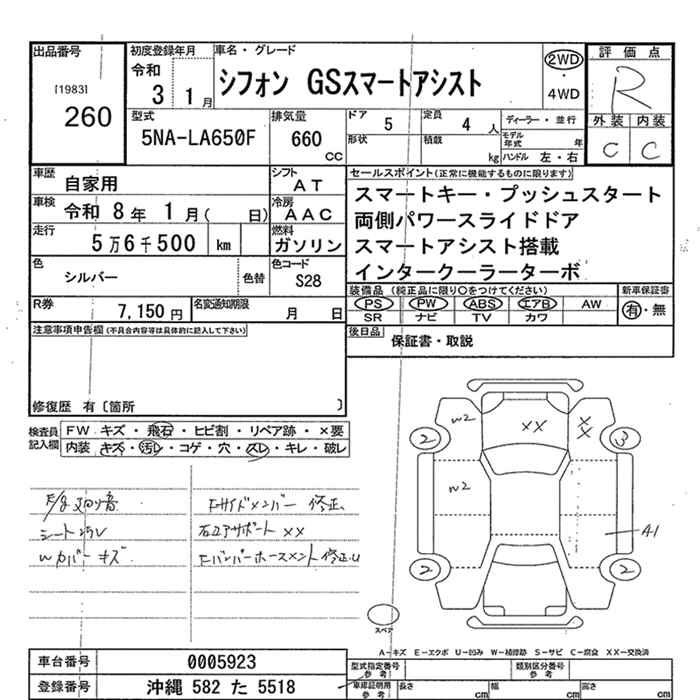 出品番号
[1983]
260
初度登録年月
令和
3 1月
車名・グレード
シフォン GSスマートアシスト
2WD
・
4WD
評価点
R
外装 内装
C C
型式
5NA-LA650F
排気量
660
CC
ドア 5
定員 4 人
形状
積載 kg
ディーラー・並行
モデル年式 年
ハンドル 左・右
車歴
自家用
シフト
AT
車検
令和 8年 1月( 日)
冷房
AAC
走行
5万6千500 km
燃料
ガソリン
色
シルバー
色替
色コード
S28
R券
7,150円
名変通知期限
月 日
セールスポイント(正常に機能するものに限ります)
スマートキー・プッシュスタート
両側パワースライドドア
スマートアシスト搭載
インタークーラーターボ
装備品(純正品に限り○をつけてください)
新車保証書
PS PW ABS エアB AW
SR ナビ TV カワ
有・無
後日品
保証書・取説
注意事項申告欄(不具合内容等は具体的に記入して下さい)
修復歴 有〔箇所 〕
検査員
記入欄
FW キズ・飛石・ヒビ割・リペア跡・×要
内装 キズ・汚レ・コゲ・穴・スレ・キレ・破レ
Fサイドメンバー 修正、
シート
右コアサポート XX
Wカバーキズ
W2
XX
X
X
2
3
W2
A1
2
2
スペア
A－キズ E－エクボ U－凹み W－補修跡 S－サビ C－腐食 XX－交換済
車台番号
0005923
登録番号
沖縄 582 た 5518
型式指定番号
参考!
類別区分番号
参考!
車庫証明用
参考!
長さ cm
幅 cm
高さ cm